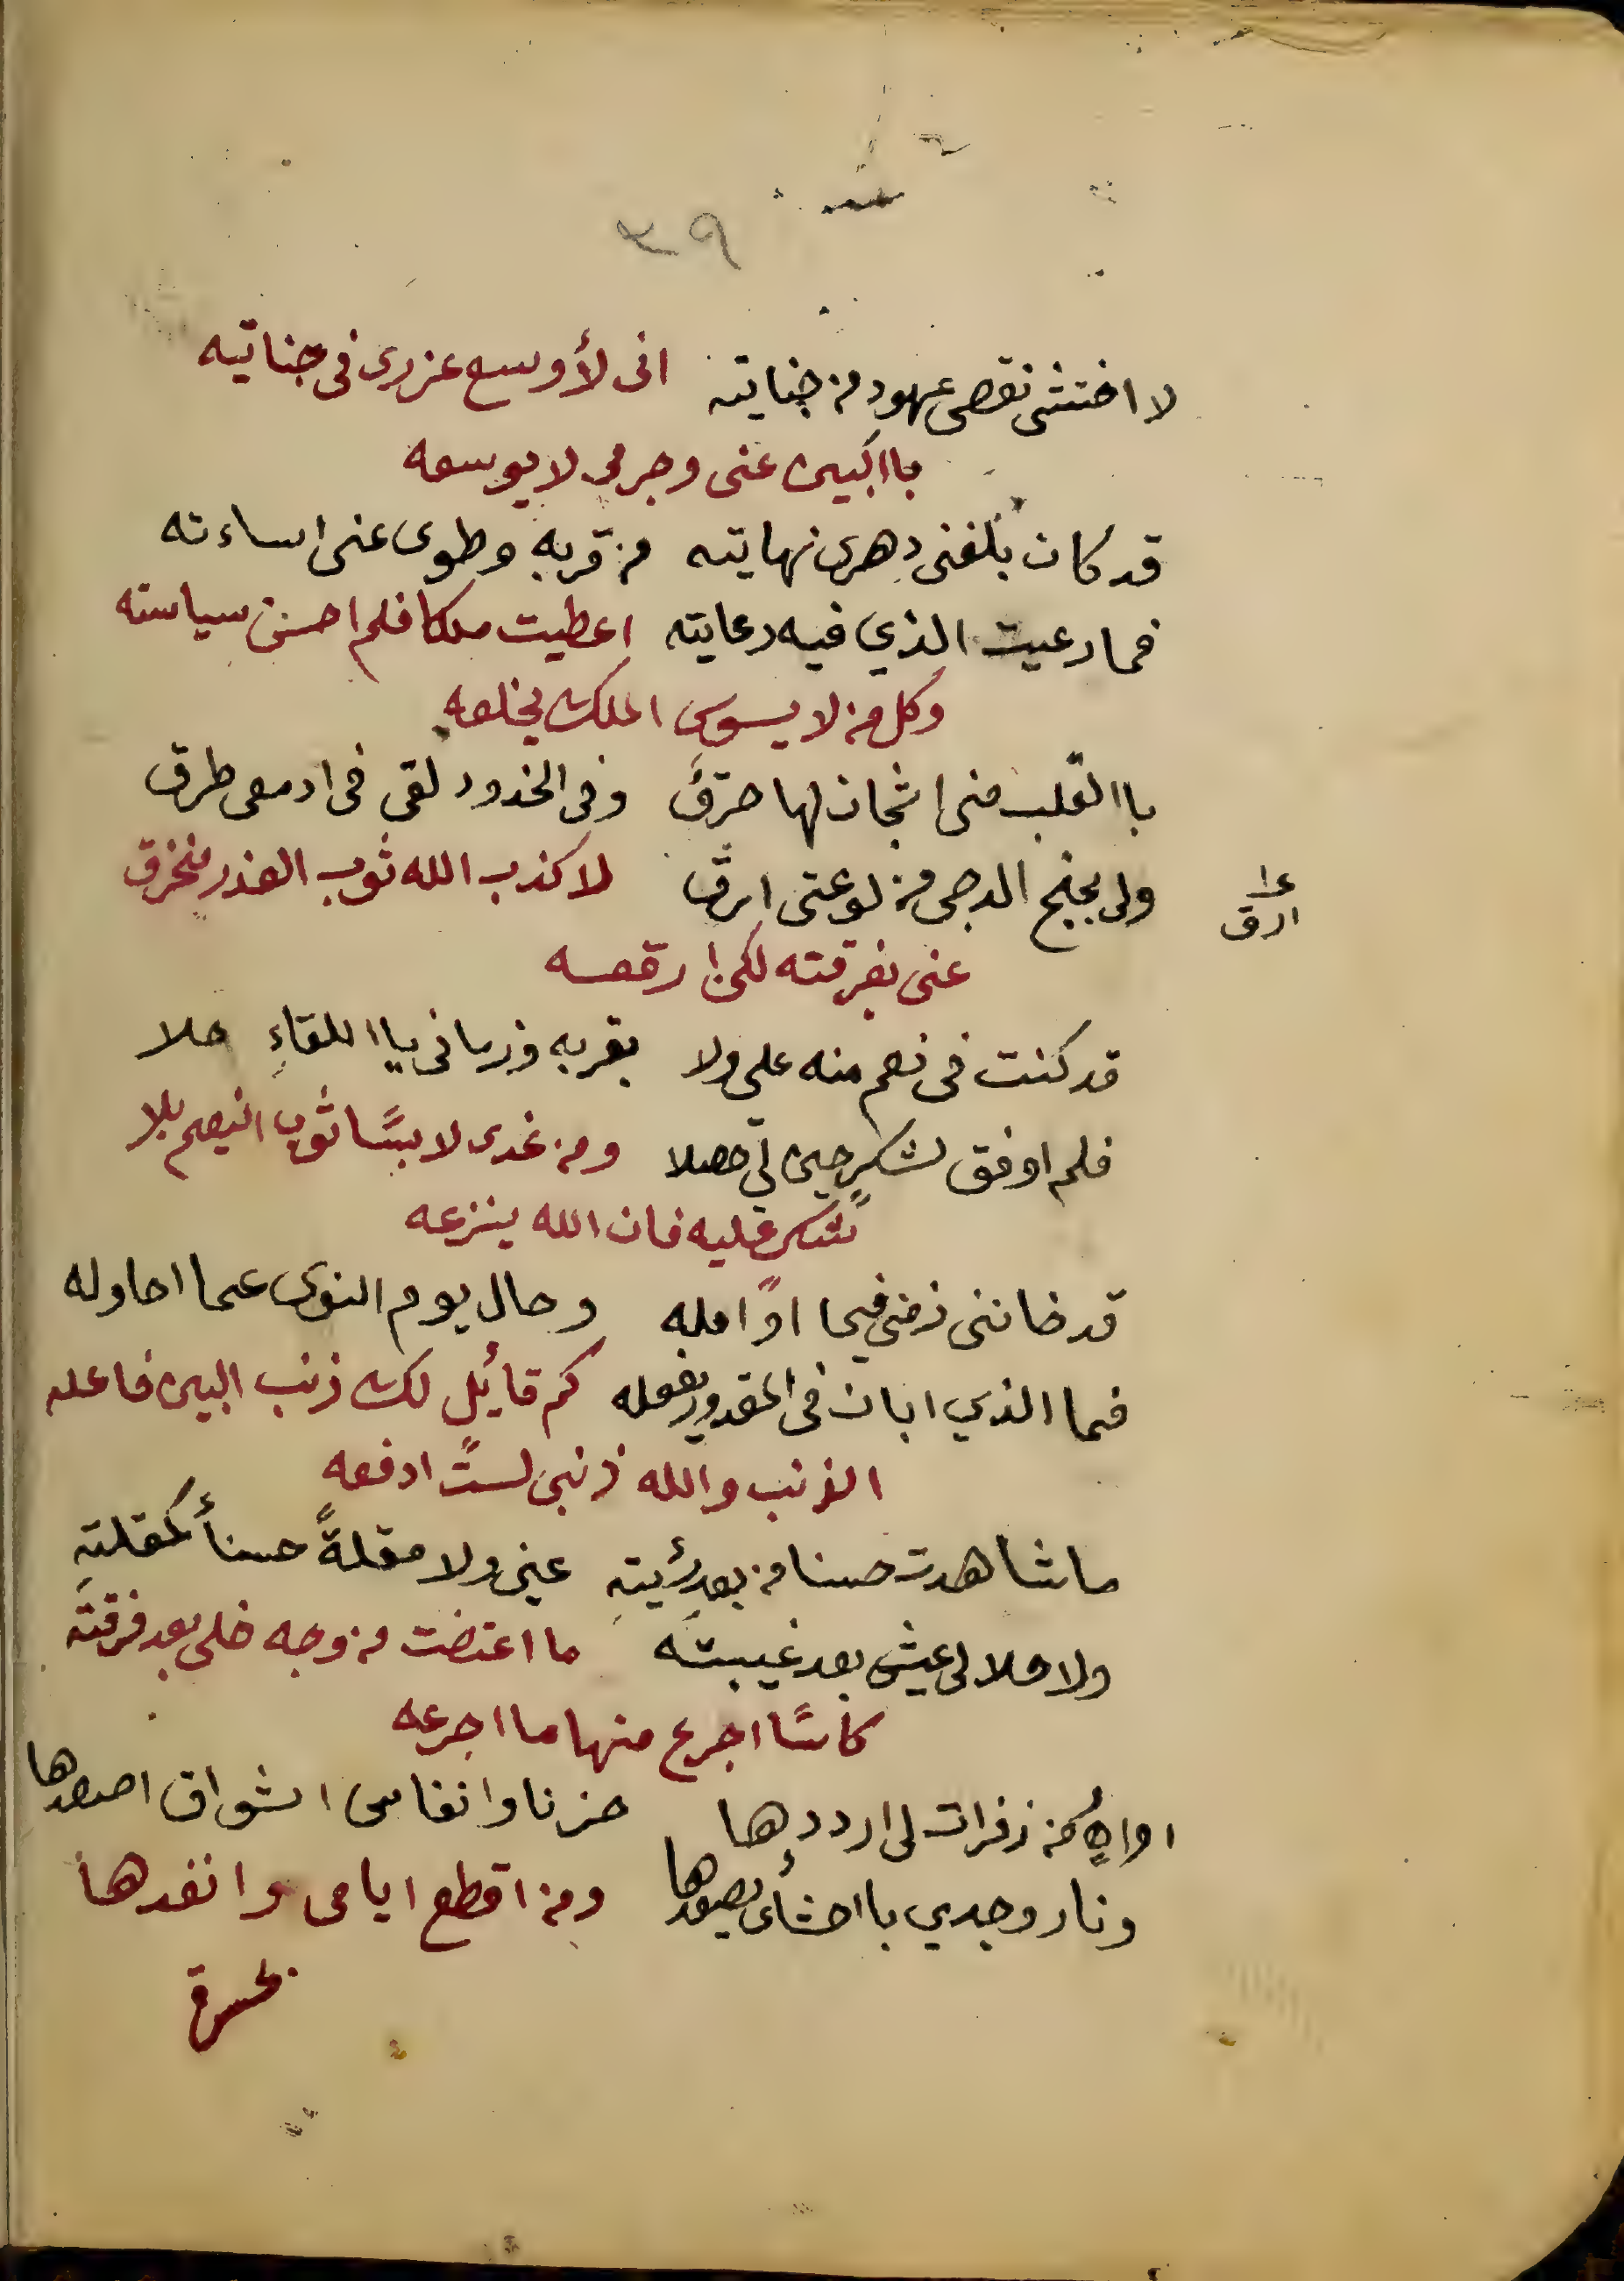 ٣٩
لا اختشى نقص عهود من جنايته انى لأوسع عزرى فى جنايته
باالبين عنى وجرمى لا يوسعه
قد كان بلغنى دهرى نهايته من قربه وطوى عنى اساءته
فما رعيت الذي فيه رعايته اعطيت ملكا فلم احسن سياسته
وكل من لا يسوس الملك يخلعه
باالقلب منى اشجان لها حرق وفى الخدود لقى فى ادمعى طرق
ولى بجنح الدجى من لوعتى ارق لا كذب الله ثوب العذر منخرق
ارق
عنى بفرقته لكن ارقعه
قد كنت فى نعم منه على ولا بقربه وزمانى باللقاءِ حلا
فلم اوفق لشكر حين لى حصلا ومن غدى لابسًا ثوب النعيم بلا
شكر عليه فان الله ينزعه
قد خاننى زمنى فيما اوامله وحال يوم النوى عما احاوله
فما الذي ابان فى المقدور يفعله كم قائيل لك ذنب البين فاعله
الذنب والله ذنبى لست ادفعه
ما شاهدت حسنا من بعد رئيتهِ عينى ولا مقلةً حسنأ كمقلتهِ
ولا حلا لى عيش بعد غيبته ما اعتضت من وجه خلى بعد فرقته
كاسًا اجرع منها ما اجرعه
اواه من زفرات لى ارددها حزنا وانفاس اشواق اصعدها
ونار وجدي بااحشأى يصعدها ومن اقطع ايامى وانفدها
بحسرة